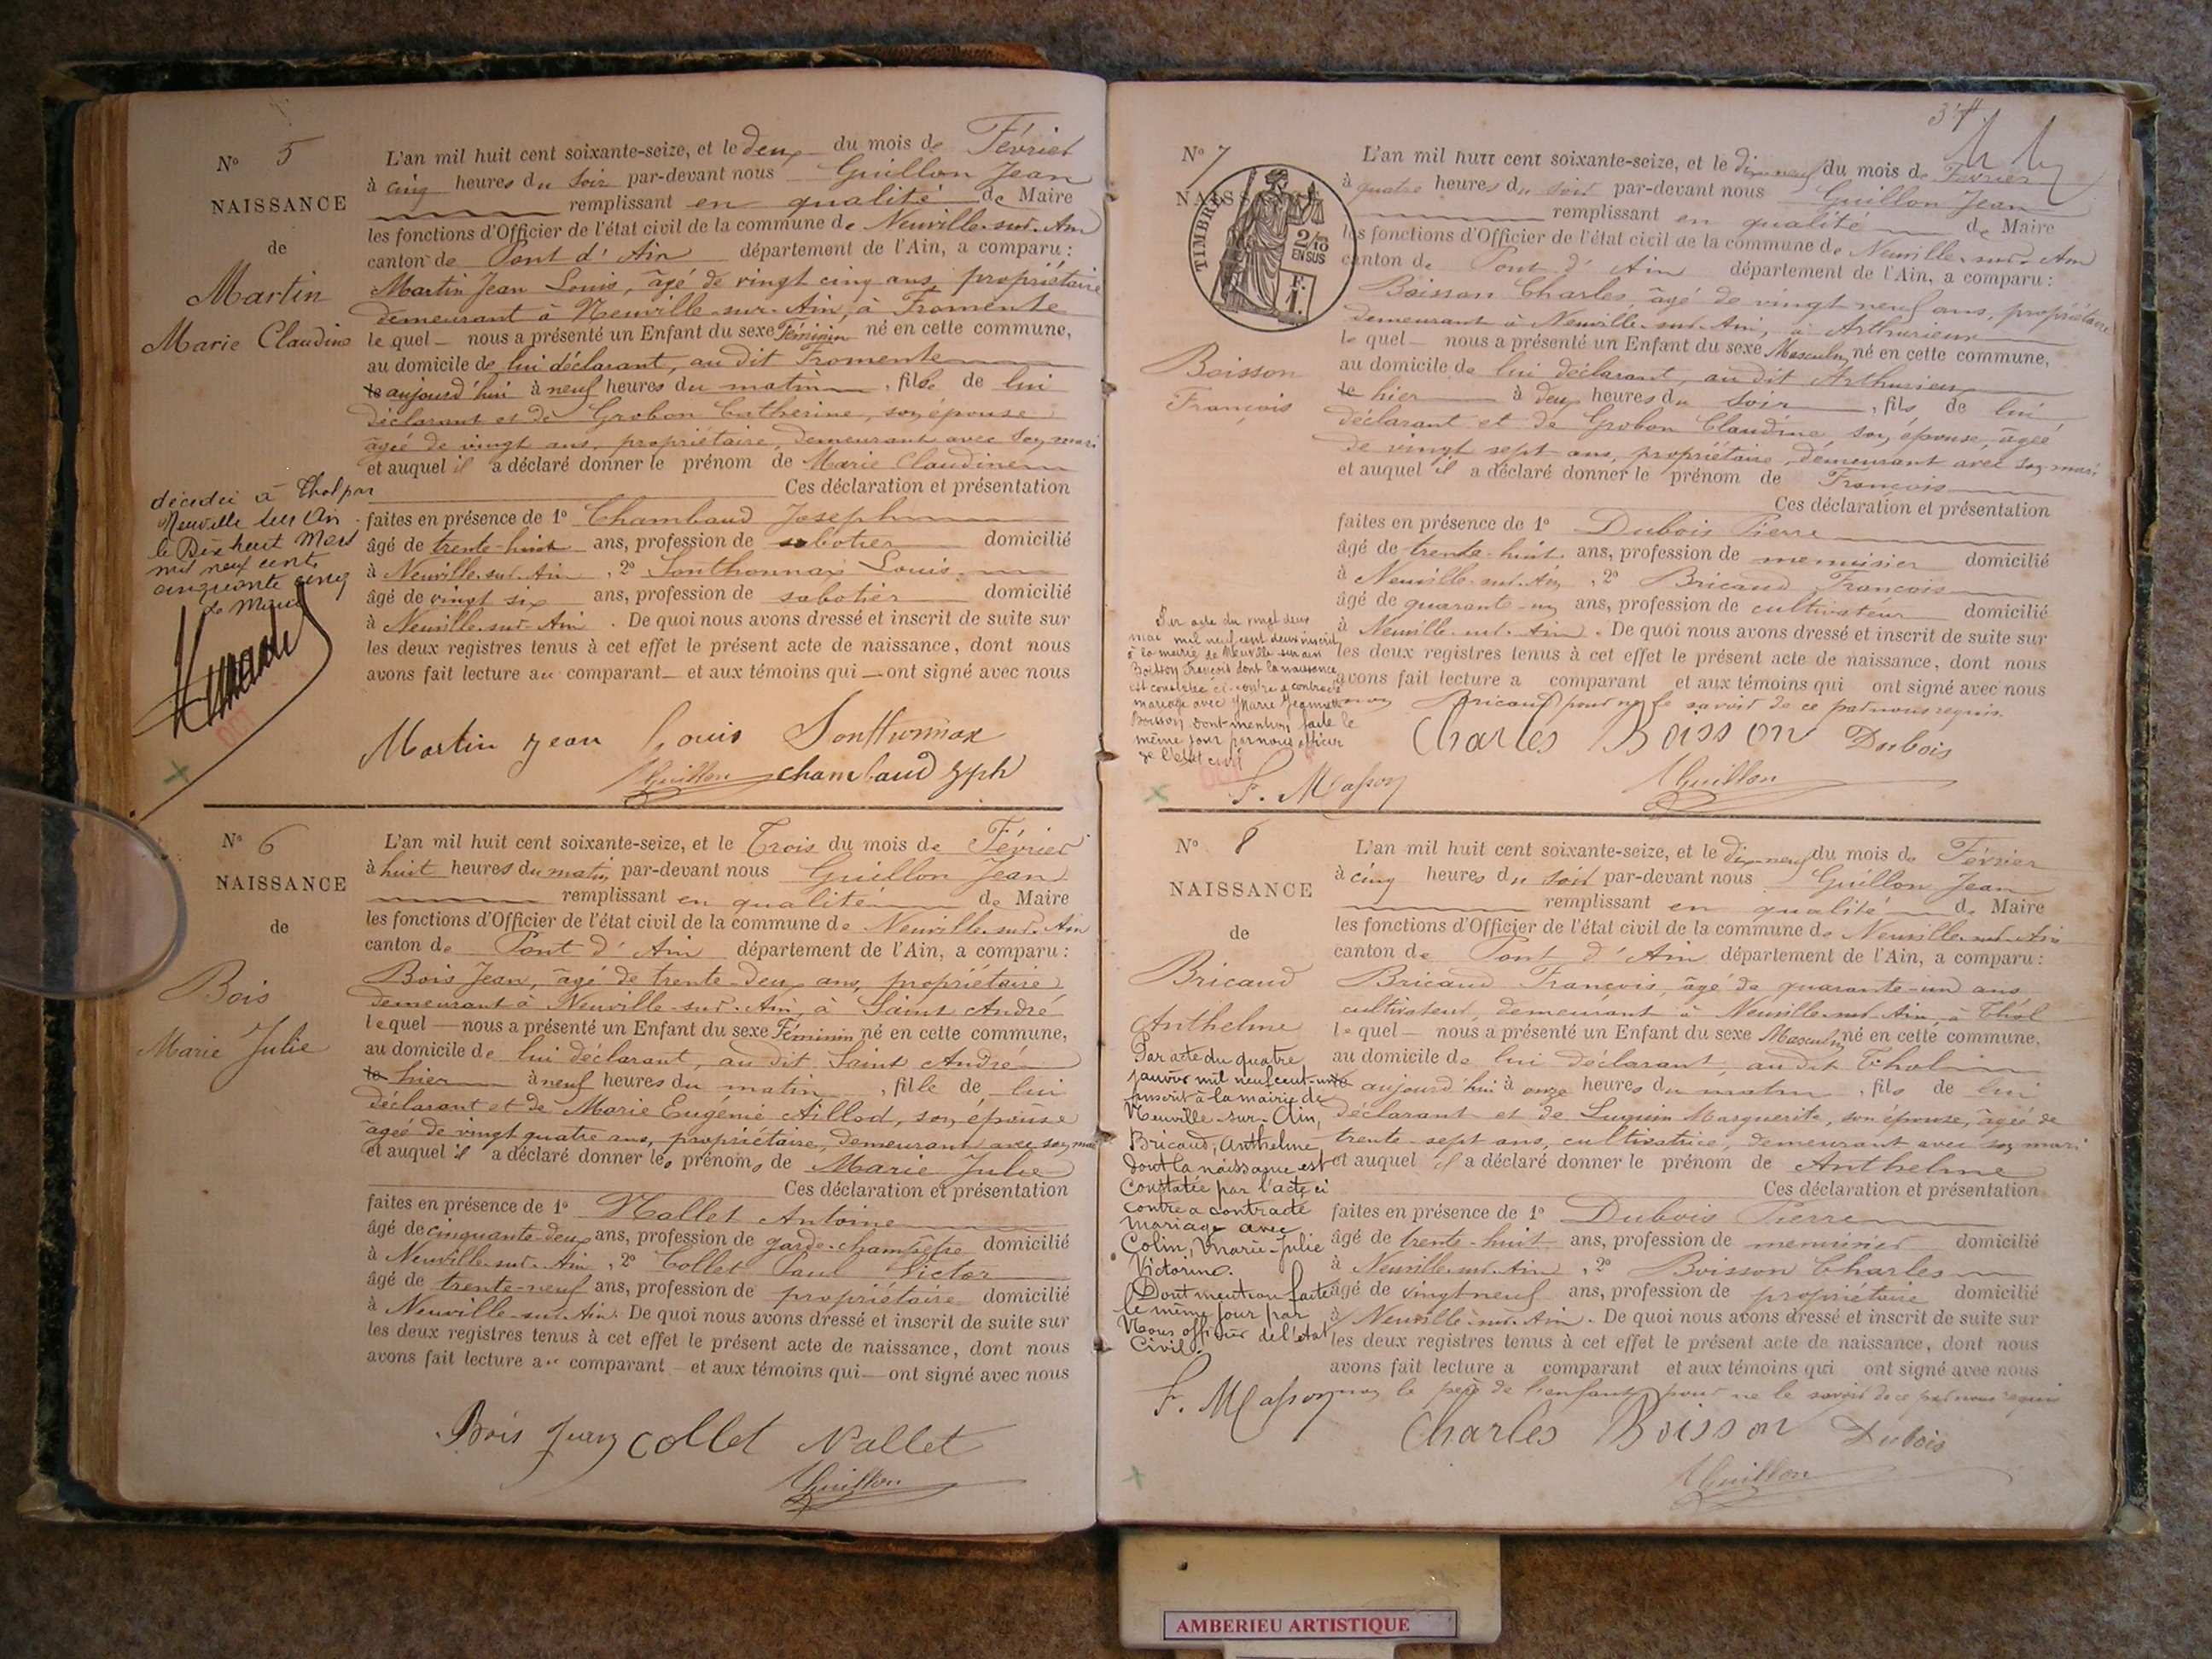 N° 5
NAISSANCE
de
Martin
Marie Claudine
décédée à Thol par
Neuville sur Ain
le Dix huit Mars
mil neuf cent
cinquante cinq
Le Maire
L'an mil huit cent soixante-seize, et le deux du mois de Février
à cinq heures du soir par-devant nous Guillon Jean
remplissant en qualité de Maire
les fonctions d'Officier de l'état civil de la commune de Neuville-sur-Ain
canton de Pont d'Ain département de l'Ain, a comparu :
Martin Jean Louis, âgé de vingt cinq ans, propriétaire
demeurant à Neuville-sur-Ain, à Fromente
le quel nous a présenté un Enfant du sexe Féminin né en cette commune,
au domicile de lui déclarant, au dit Fromente
le aujourd'hui à neuf heures du matin, fille de lui
déclarant et de Grobon Catherine, son épouse
âgée de vingt ans, propriétaire, demeurant avec son mari
et auquel il a déclaré donner le prénom de Marie Claudine
Ces déclaration et présentation
faites en présence de 1° Chambaud Joseph
âgé de trente-huit ans, profession de sabotier domicilié
à Neuville-sur-Ain, 2° Sonthonnax Louis
âgé de vingt six ans, profession de sabotier domicilié
à Neuville-sur-Ain. De quoi nous avons dressé et inscrit de suite sur
les deux registres tenus à cet effet le présent acte de naissance, dont nous
avons fait lecture au comparant et aux témoins qui ont signé avec nous
Martin jean Louis Sonthonnax
Guillon chambaud jph
N° 6
NAISSANCE
de
Bois
Marie Julie
L'an mil huit cent soixante-seize, et le Trois du mois de Février
à huit heures du matin par-devant nous Guillon Jean
remplissant en qualité de Maire
les fonctions d'Officier de l'état civil de la commune de Neuville-sur-Ain
canton de Pont d'Ain département de l'Ain, a comparu :
Bois Jean, âgé de trente-deux ans, propriétaire
demeurant à Neuville-sur-Ain, à Saint André
lequel nous a présenté un Enfant du sexe Féminin né en cette commune,
au domicile de lui déclarant, au dit Saint André
le hier à neuf heures du matin, fille de lui
déclarant et de Marie Eugénie Aillod, son épouse
âgée de vingt quatre ans, propriétaire, demeurant avec son mari
et auquel il a déclaré donner les prénoms de Marie Julie
Ces déclaration et présentation
faites en présence de 1° Nallet Antoine
âgé de cinquante-deux ans, profession de garde-champêtre domicilié
à Neuville-sur-Ain, 2° Collet Paul Victor
âgé de trente-neuf ans, profession de propriétaire domicilié
à Neuville-sur-Ain. De quoi nous avons dressé et inscrit de suite sur
les deux registres tenus à cet effet le présent acte de naissance, dont nous
avons fait lecture au comparant et aux témoins qui ont signé avec nous
Bois Jean Collet Nallet
Guillon
N° 7
NAISSANCE
TIMBRE
2/10
EN SUS
F.
1.
Boisson
François
Par acte du vingt deux
mai mil neuf cent deux inscrit
à la mairie de Neuville sur ain
Boisson François dont la naissance
est constatée ci-contre a contracté
mariage avec Marie Jeannette
Boisson, dont mention faite le
même jour par nous officier
de l'état civil
F. Masson
L'an mil huit cent soixante-seize, et le dix-neuf du mois de Février
à quatre heures du soir par-devant nous Guillon Jean
remplissant en qualité de Maire
les fonctions d'Officier de l'état civil de la commune de Neuville-sur-Ain
canton de Pont d'Ain département de l'Ain, a comparu :
Boisson Charles, âgé de vingt-neuf ans, propriétaire
demeurant à Neuville-sur-Ain, à Arthurieux
le quel nous a présenté un Enfant du sexe Masculin né en cette commune,
au domicile de lui déclarant, au dit Arthurieux
le hier à deux heures du soir, fils de lui
déclarant et de Grobon Claudine son épouse, âgée
de vingt sept ans, propriétaire, demeurant avec son mari
et auquel il a déclaré donner le prénom de François
Ces déclaration et présentation
faites en présence de 1° Dubois Pierre
âgé de trente-huit ans, profession de menuisier domicilié
à Neuville-sur-Ain, 2° Bricaud François
âgé de quarante-un ans, profession de cultivateur domicilié
à Neuville-sur-Ain. De quoi nous avons dressé et inscrit de suite sur
les deux registres tenus à cet effet le présent acte de naissance, dont nous
avons fait lecture a comparant et aux témoins qui ont signé avec nous
non Bricaud pour ne le savoir de ce par nous requis
Charles Boisson Dubois
Guillon
N° 8
NAISSANCE
de
Bricaud
Anthelme
Par acte du quatre
janvier mil neuf cent-un
inscrit à la mairie de
Neuville-sur-Ain,
Bricaud, Anthelme
dont la naissance est
constatée par l'acte ci
contre a contracté
mariage avec
Colin, Marie-Julie
Victorine.
Dont mention faite
le même jour par
Nous officier de l'état
Civil.
F. Masson
L'an mil huit cent soixante-seize, et le dix-neuf du mois de Février
à cinq heures du soir par-devant nous Guillon Jean
remplissant en qualité de Maire
les fonctions d'Officier de l'état civil de la commune de Neuville-sur-Ain
canton de Pont d'Ain département de l'Ain, a comparu :
Bricaud François, âgé de quarante-un ans
cultivateur, demeurant à Neuville-sur-Ain, à Thol
le quel nous a présenté un Enfant du sexe Masculin né en cette commune,
au domicile de lui déclarant, au dit Thol
le aujourd'hui à onze heures du matin, fils de lui
déclarant et de Luquin Marguerite, son épouse, âgée de
trente-sept ans, cultivatrice, demeurant avec son mari
et auquel il a déclaré donner le prénom de Anthelme
Ces déclaration et présentation
faites en présence de 1° Dubois Pierre
âgé de trente-huit ans, profession de menuisier domicilié
à Neuville-sur-Ain, 2° Boisson Charles
âgé de vingt neuf ans, profession de propriétaire domicilié
à Neuville-sur-Ain. De quoi nous avons dressé et inscrit de suite sur
les deux registres tenus à cet effet le présent acte de naissance, dont nous
avons fait lecture a comparant et aux témoins qui ont signé avec nous
non le père de l'enfant pour ne le savoir de ce par nous requis
Charles Boisson Dubois
Guillon
AMBERIEU ARTISTIQUE